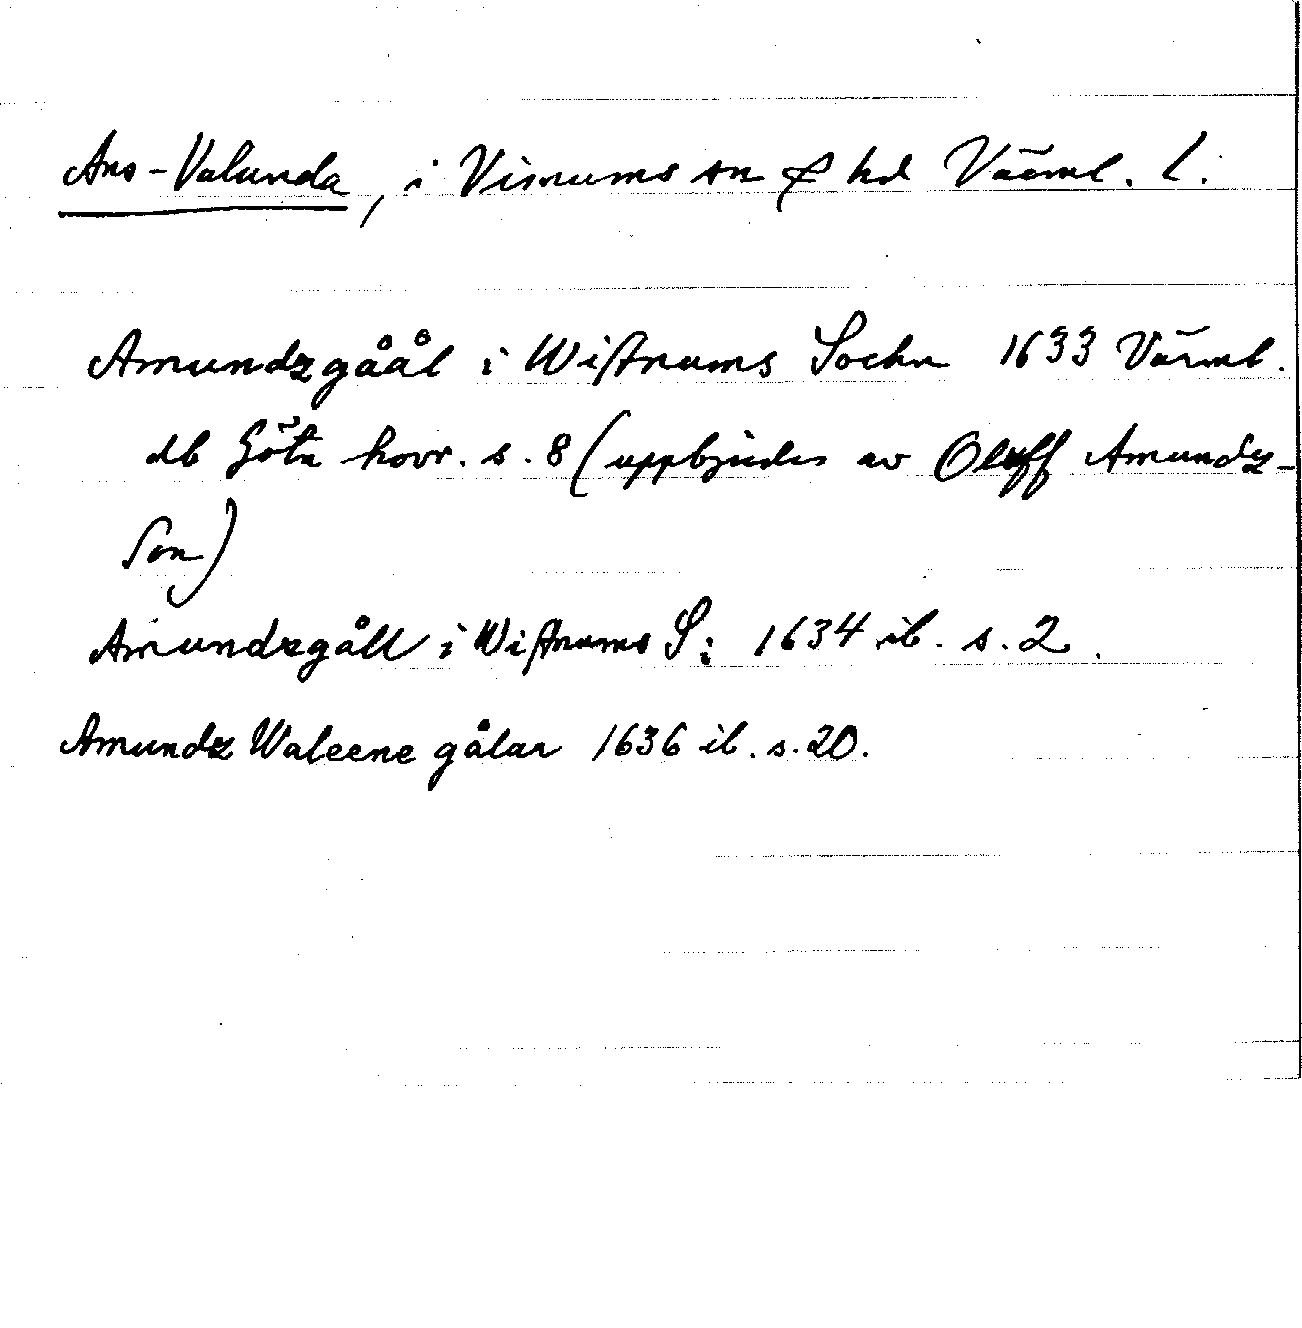 Ans-Valunda, i Visnums sn & hd Värml. l.
Amundzgåål i Wissnums Sochn 1633 Värml.
db Göta hovr. s. 8 (uppbjudes av Oluff Amundz-
son)
Amundzgåll i Wissnums S: 1634 ib. s. 2.
Amundz Waleene gålar 1636 ib. s. 20.